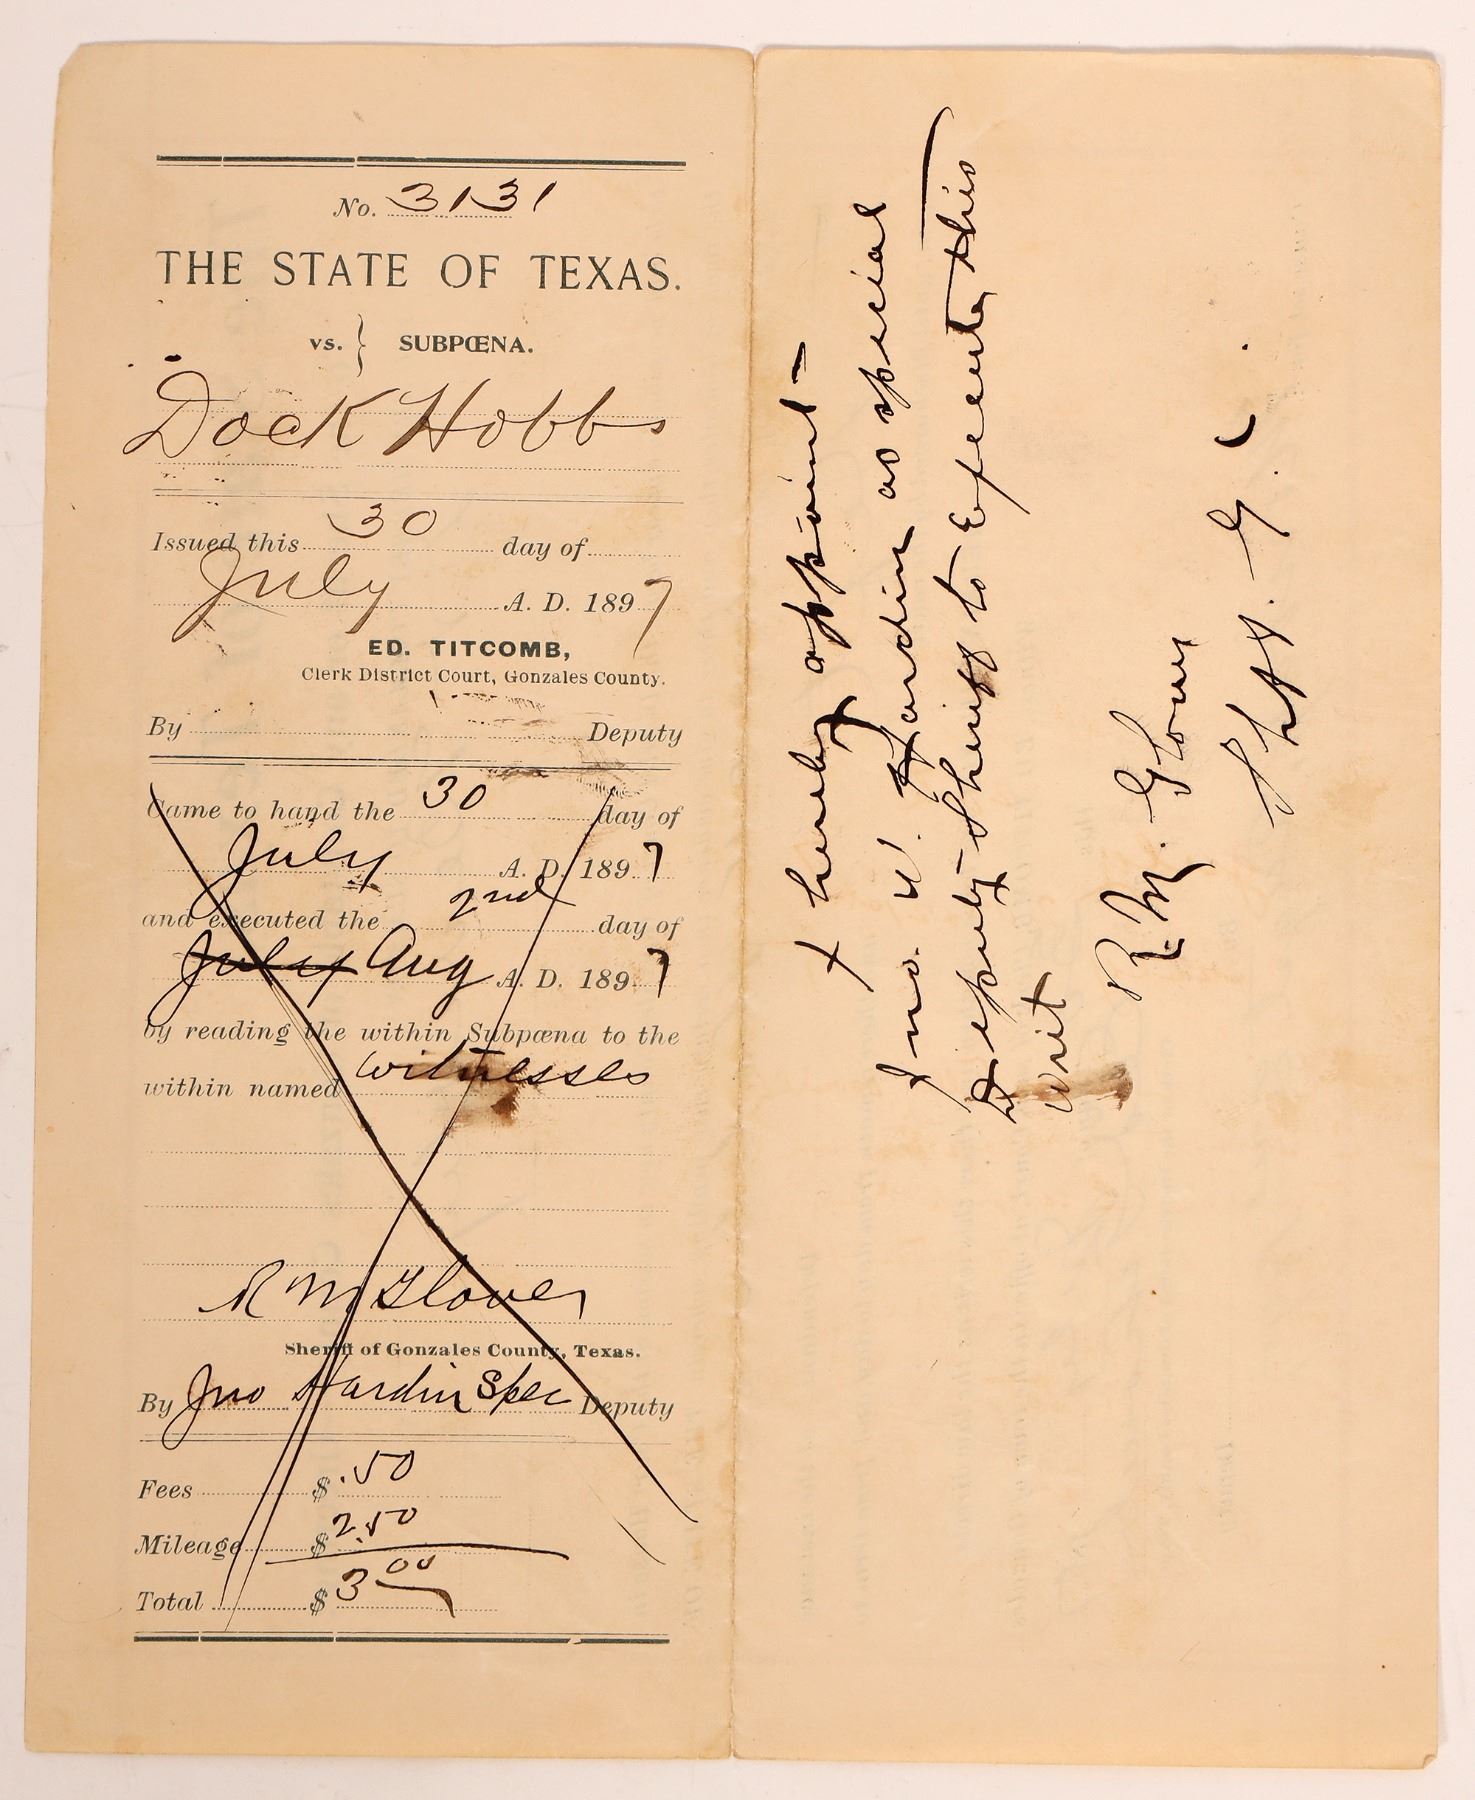 No. 3131
THE STATE OF TEXAS.
vs. } SUBPŒNA.
Dock Hobbs
Issued this 30 day of
July A. D. 1897
ED. TITCOMB,
Clerk District Court, Gonzales County.
By Deputy
Came to hand the 30 day of
July A. D. 1897
and executed the 2nd day of
July Aug A. D. 1897
by reading the within Subpœna to the
within named witnesses
R M Glover
Sheriff of Gonzales County, Texas.
By Jno Hardin Spec Deputy
Fees $ .50
Mileage $ 2.50
Total $ 3 00
I hereby appoint
Jno. W. Hardin as special
Deputy Sheriff to Execute this
writ
R. M. Glover
Shff. G. C.